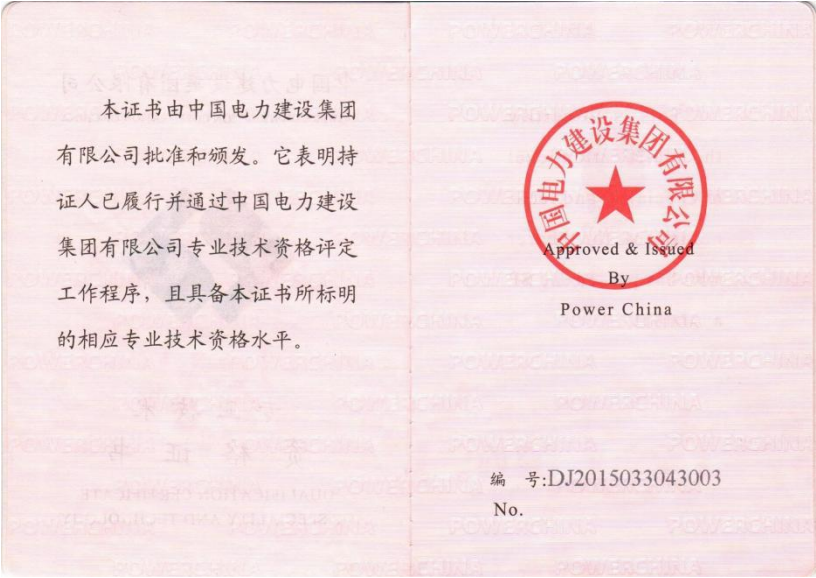 本证书由中国电力建设集团
有限公司批准和颁发。它表明持
证人已履行并通过中国电力建设
集团有限公司专业技术资格评定
工作程序，且具备本证书所标明
的相应专业技术资格水平。
中国电力建设集团有限公司
Approved & Issued
By
Power China
编 号:DJ2015033043003
No.